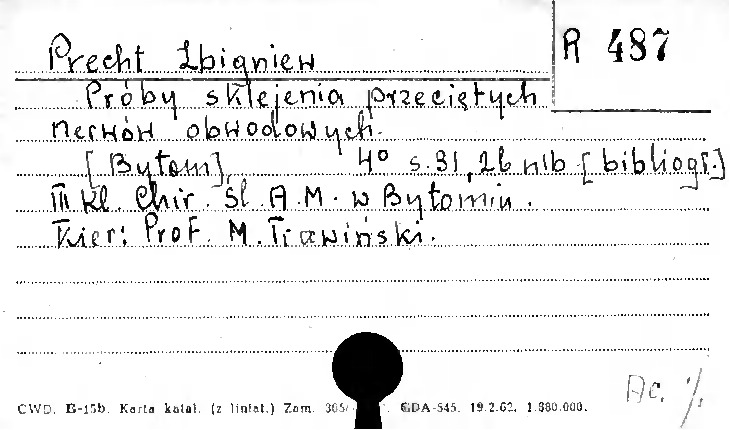 Precht Zbigniew
R 487
Próby sklejenia przeciętych
nerwów obwodowych.
[Bytom], 4° s. 31, 26 nlb [bibliogr.]
III Kl. Chir. Śl. A.M. w Bytomiu.
Kier: Prof. M. Trawiński.
Ac. %
CWD. B-15b. Karta katal. (z liniat.) Zam. 305/ GDA-545. 19.2.62. 1.980.000.